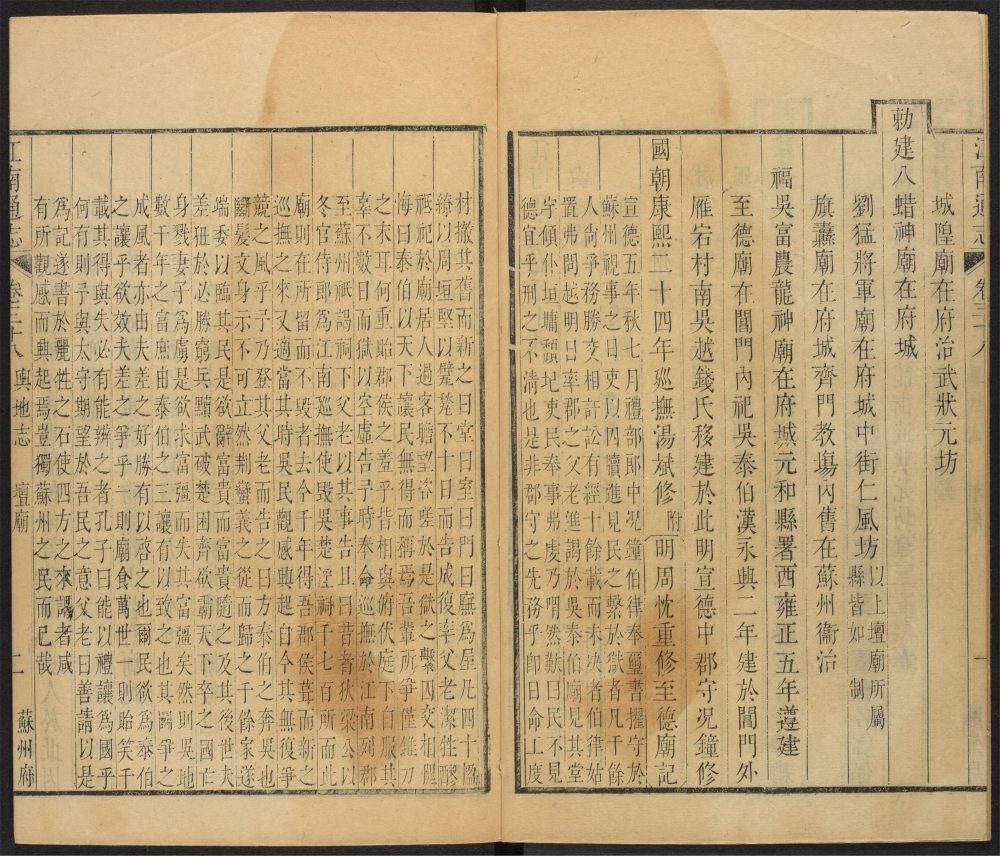 江南通志 卷三十八 一
城隍廟在府治武狀元坊
勅建八蜡神廟在府城
劉猛將軍廟在府城中街仁風坊以上壇廟所屬縣皆如制
旗纛廟在府城齊門教塲內舊在蘇州衞治
福吳富農龍神廟在府城元和縣署西雍正五年遵建
至德廟在閶門內祀吳泰伯漢永興二年建於閶門外
雁宕村南吳越錢氏移建於此明宣德中郡守况鐘修
國朝康熙二十四年廵撫湯斌修附明周忱重修至德廟記
宣德五年秋七月禮部郎中况鐘伯律奉璽書擢守於
蘇州視事之日吏以囚牘進見民之繫於獄者凡千餘
人尙爭務勝交相訐訟有經十餘載而未决者伯律姑
置弗問越明日率郡之父老進謁於吳泰伯廟見其堂
宇傾仆垣墉頽圮吏民奉事弗虔乃喟然歎曰民不見
德宜乎刑之不淸也是非郡守之先務乎卽日命工度
材撤其舊而新之曰堂曰室曰門曰廡爲屋凡四十楹
繚以周垣堅以甓甃不十日而告成復率父老潔牲醪
祗祀於廟居人過客瞻望咨嗟於是獄之繫囚交相愳
悔曰泰伯以天下讓民無得而稱焉吾輩所爭僅錐刀
之末耳何重貽郡侯之羞乎皆相與俯伏庭下自服其
辜不數日而獄以空虛告予時奉命巡撫於江南列郡
至蘇州祇謁祠下父老以其事告且曰昔者狄梁公以
冬官侍郎爲江南巡撫使毀吳楚淫祠千七百所而此
廟則在所留而不毀者去今千年得吾郡侯葺而新之
巡撫之來又適當其時吳民觀感興起自今其無復爭
競之風乎予乃登其父老而告之曰方泰伯之奔吳也
斷髮文身示不可立然荆蠻義之從而歸之千餘家遂
端委以臨其民是欲辭富貴而富貴隨之及其後世夫
差狃於必勝窮兵黷武破楚困齊欲霸天下卒之國亡
身戮妻子爲虜是欲求富彊而失其富彊矣然則吳地
數千年之富庶由泰伯之三讓有以致之也其嚚爭之
成風者亦由夫差之好勝有以啓之也爾民欲爲泰伯
之讓乎欲效夫差之爭乎一則廟食萬世一則貽笑千
載其得與失必有能辨之者孔子曰能以禮讓爲國乎
何有則予與太守期望於吾民之意父老曰善請以是
爲記遂書於麗牲之石使四方之來謁者咸
有所觀感而興起焉豈獨蘇州之民而已哉
江南通志 卷三十八 輿地志 壇廟 二 蘇州府